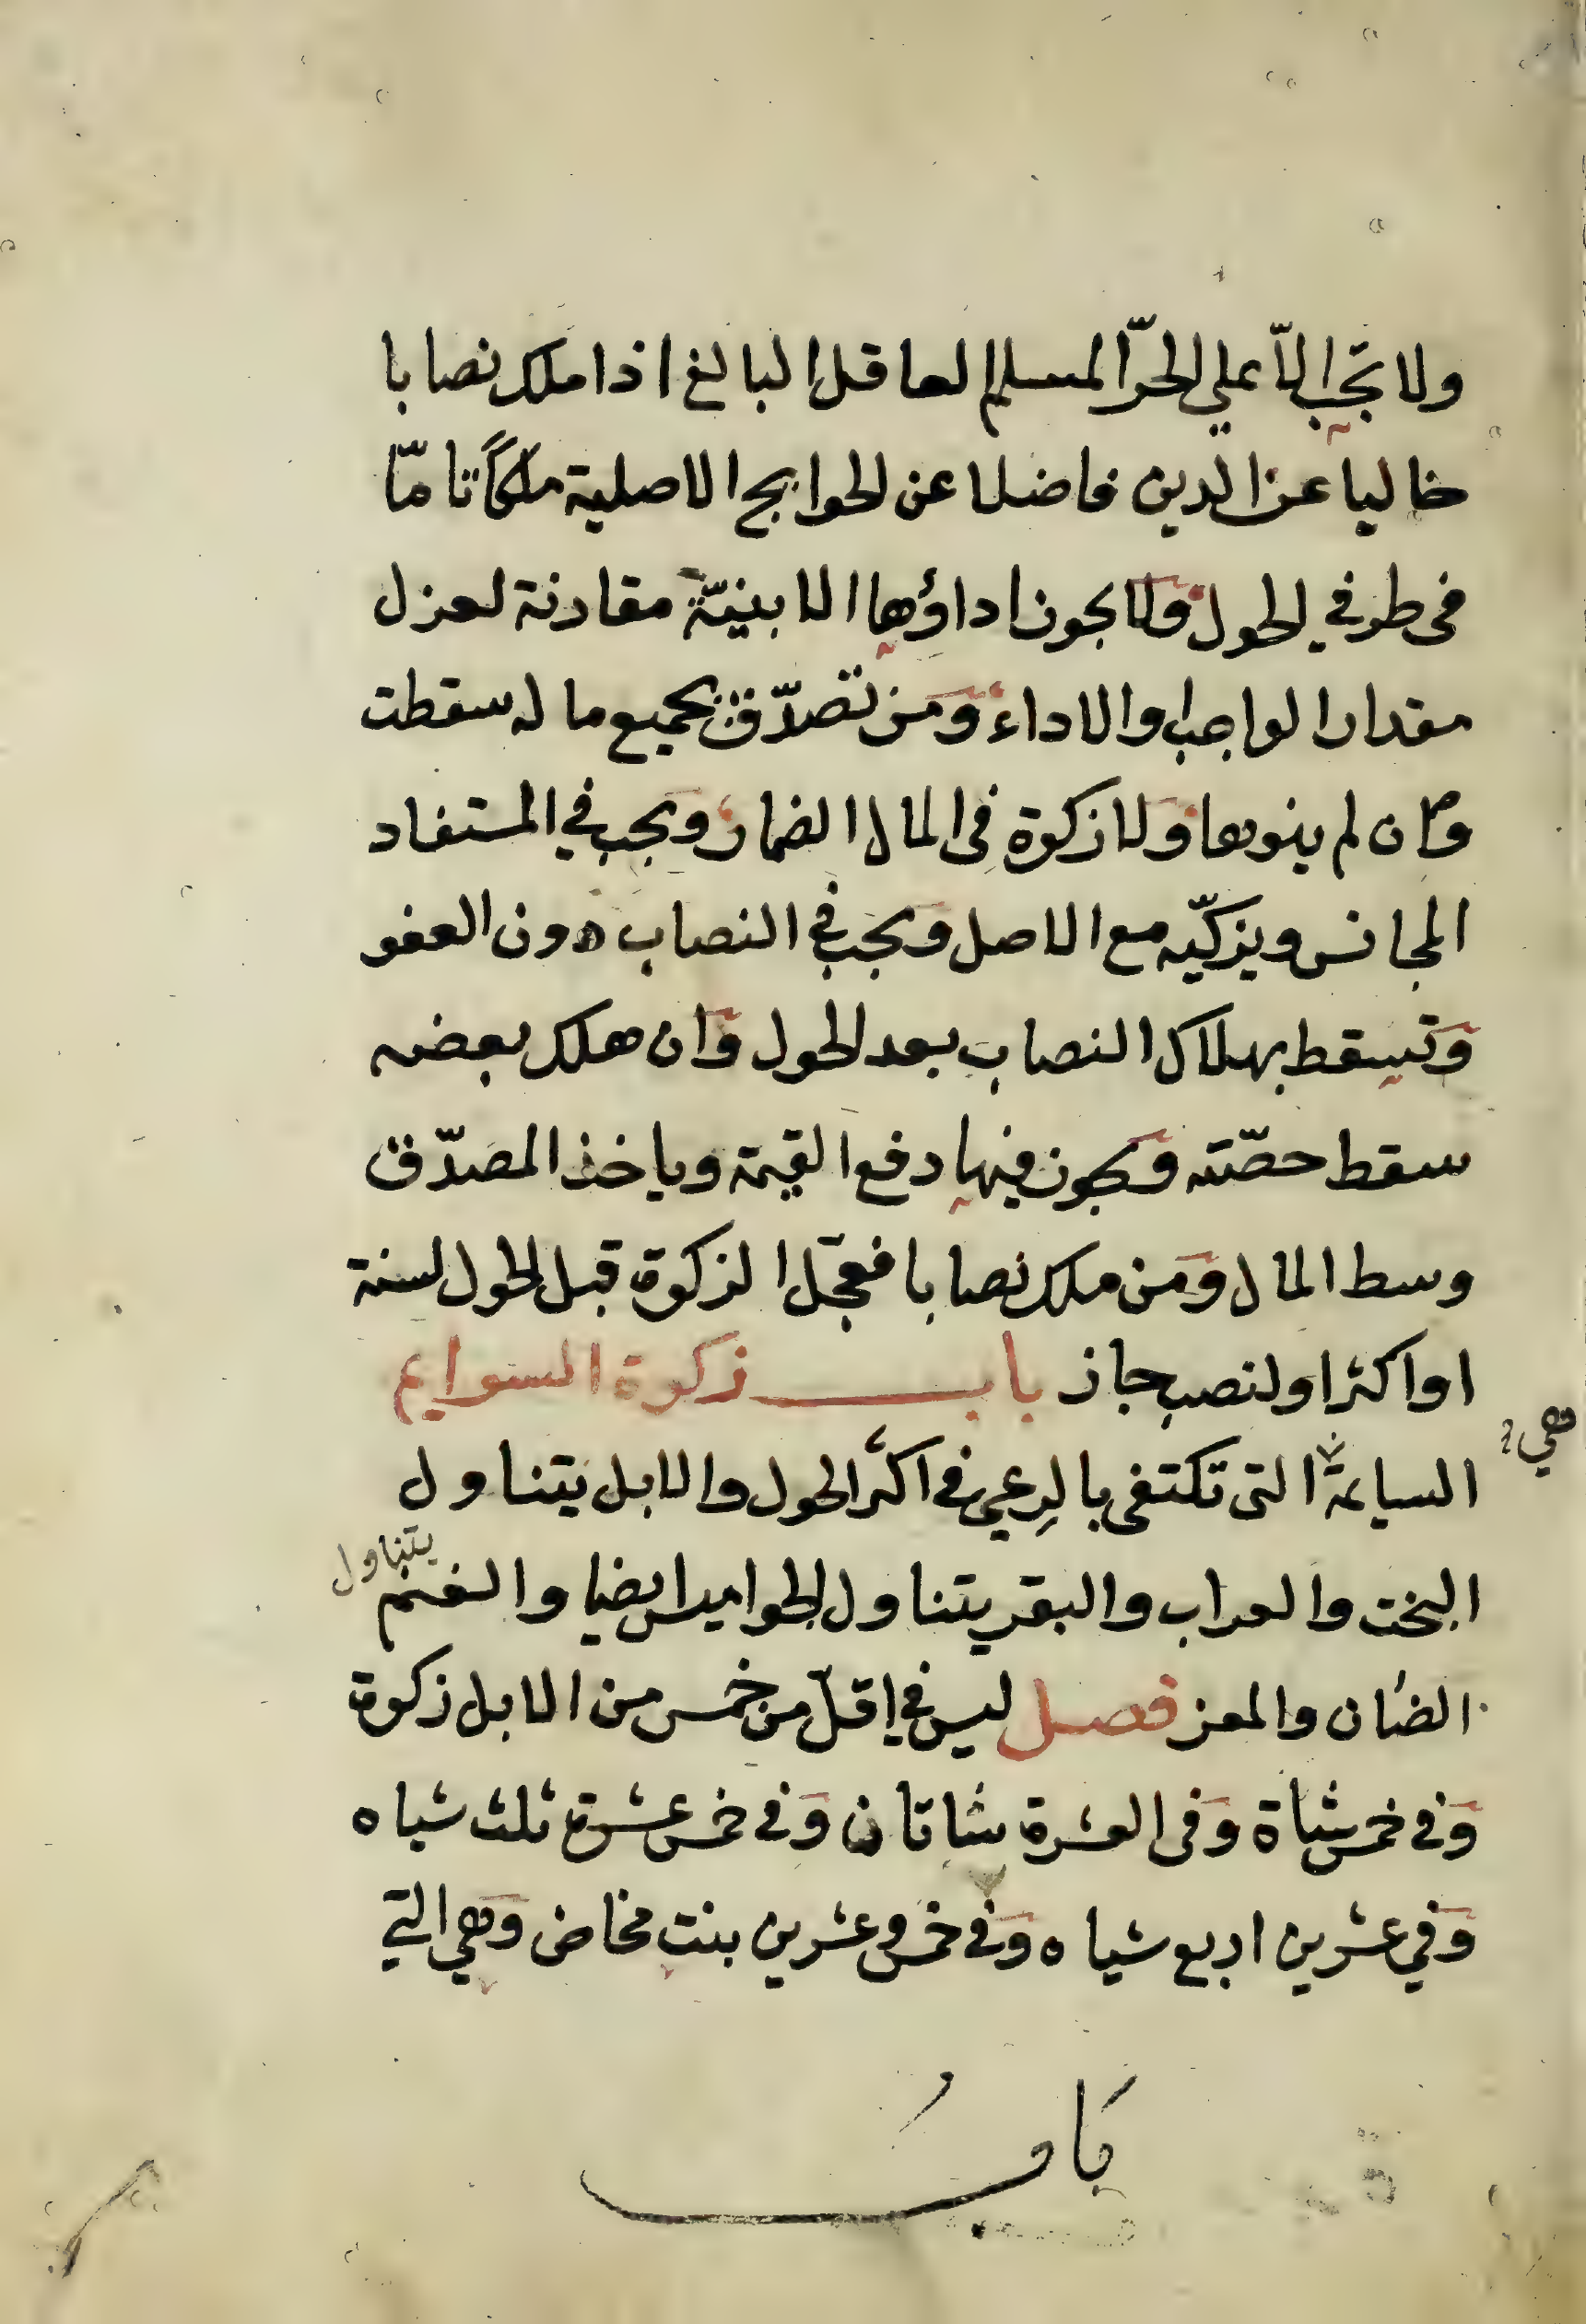 ولا تجب الّا علي الحرّ المسلم العاقل البالغ اذا ملك نصابا
خاليا عن الدين فاضلا عن الحوايج الاصلية ملكًا تامّا
فى طرفي الحول ولا يجوز اداؤها الا بنيّة مقارنة لعزل
مقدار الواجب او الاداء ومن تصدّق بجميع ماله سقطت
وان لم ينوها ولا زكوة فى المال الضمار ويجب في المستفاد
المجانس ويزكّيه مع الاصل وتجب في النصاب دون العفو
وتسقط بهلاك النصاب بعد الحول وان هلك بعضه
سقط حصّته ويجوز فيها دفع القيمة وياخذ المصدّق
وسط المال ومن ملك نصابا فعجّل الزكوة قبل الحول لسنة
او اكثر او لنصب جاز باب زكوة السوايم
السايمة التى تكتفى بالرعي في اكثر الحول والابل يتناول
وهي
البخت والعراب والبقر يتناول الجواميس ايضا والغنم
يتناول
الضأن والمعز فصل ليس في اقلّ من خمس من الابل زكوة
وفي خمس شاة وفى العشرة شاتان وفي خمس عشرة ثلث شياه
وفي عشرين اربع شياه وفي خمس وعشرين بنت مخاض وهي التي
بَابُ